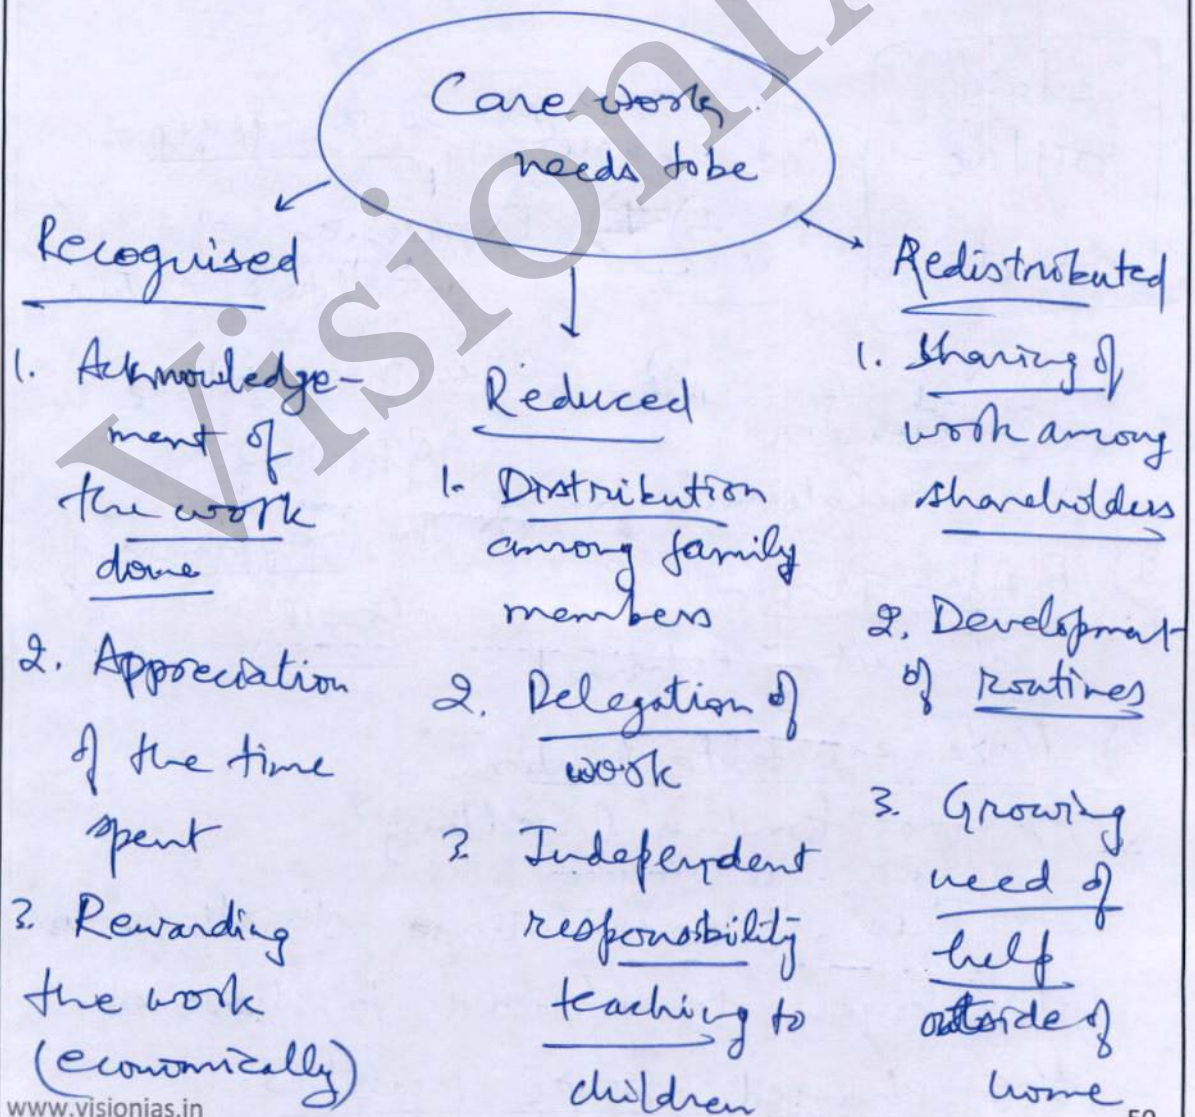 Care work
needs to be
Recognised
1. Acknowledge-
ment of
the work
done
2. Appreciation
of the time
spent
3. Rewarding
the work
(economically)
Reduced
1. Distribution
among family
members
2. Delegation of
work
3. Independent
responsibility
teaching to
children
Redistributed
1. Sharing of
work among
shareholders
2. Development
of routines
3. Growing
need of
help
outside of
home
www.visionias.in